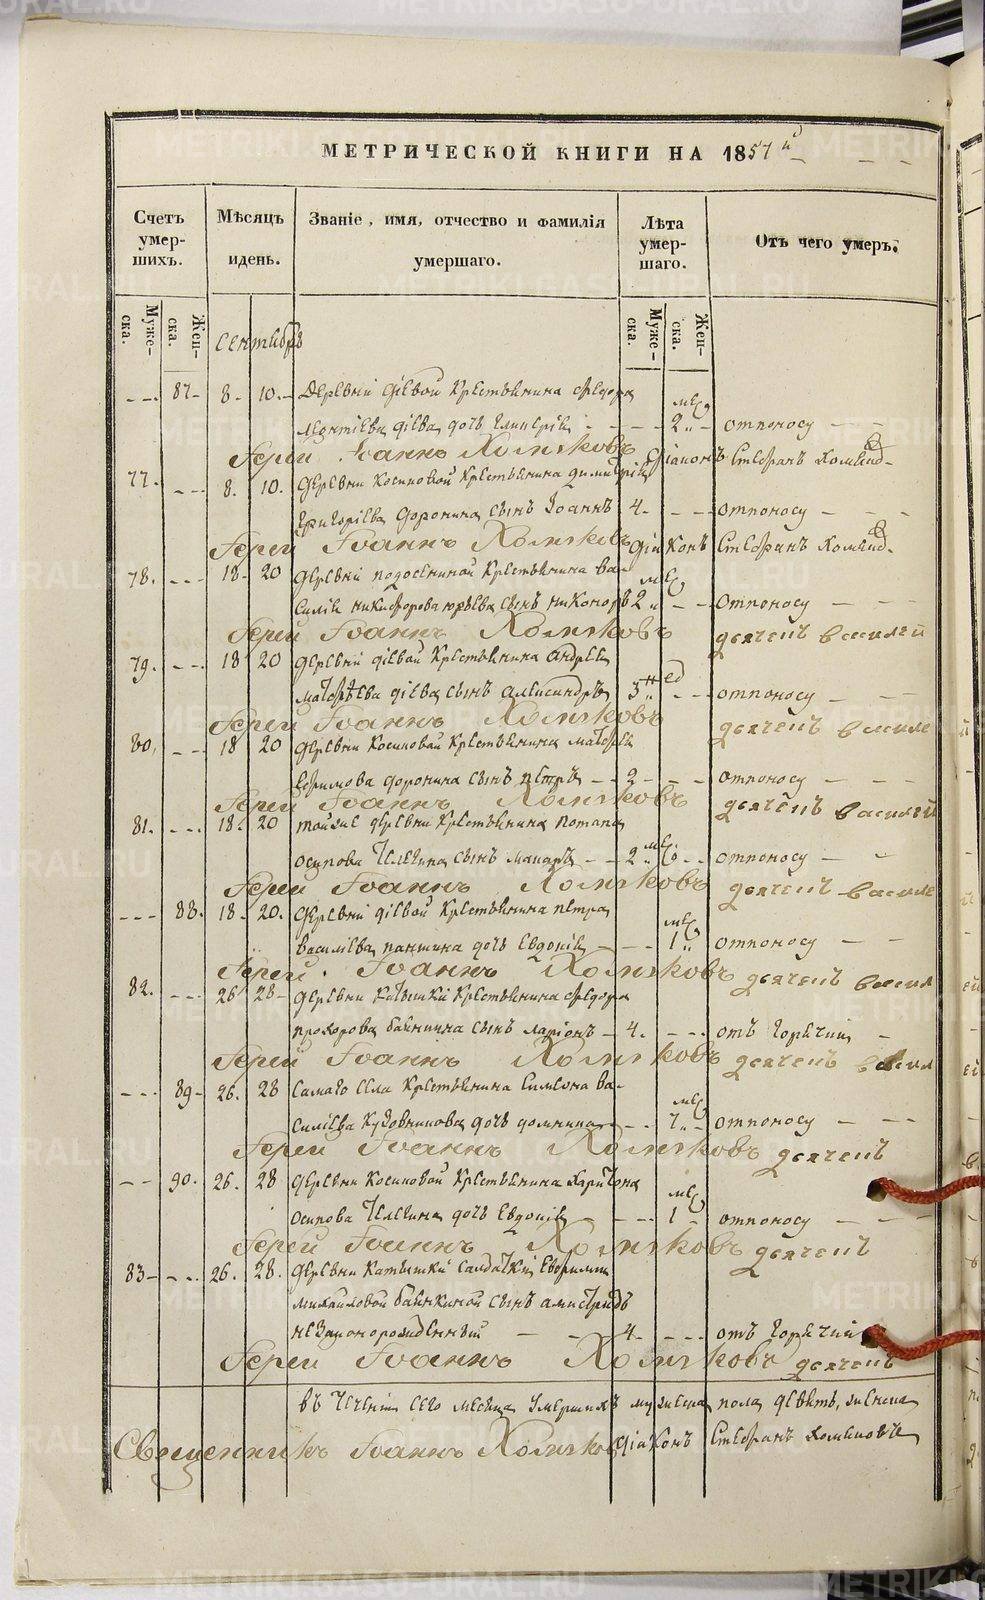 МЕТРИЧЕСКОЙ КНИГИ НА 1857 й
Счетъ умер- шихъ.
Мѣсяцъ идень.
Званіе, имя, отчество и фамилія умершаго.
Лѣта умер- шаго.
Отъ чего умеръ.
Муже- ска.
Жен- ска.
Муже- ска.
Жен- ска.
сентябрь
87 8 10 Деревни діевой крестьянина Федора
мец.
Леонтіева діева дочь 2 отпоносу
Іерей Іоаннъ Холмяковъ Діаконъ Стефанъ
77. 8. 10. деревни Косиковой крестьянина димитрія
Григоріева доронина сынъ Іоаннъ 4 отпоносу
Іерей Іоаннъ Холмяковъ діаконъ Стефанъ
78. 18 20 деревни подосениной крестьянина ва-
мец
силія никифорова юрьева сынъ никоноръ 2 отпоносу
Іерей Іоаннъ Холмяковъ дьячепъ василей
79. 18 20 деревни діевой крестьянина андрея
нед
матфѣева діева сынъ александръ 3 отпоносу
Іерей Іоаннъ Холмяковъ дьячепъ василе
80, 18 20 деревни косиковой крестьянина матфея
Ефимова доронина сынъ петръ 2 отпоносу
Іерей Іоаннъ Холмяковъ дьячепъ василей
81. 18. 20 тойже деревни крестьянина потапа
мец.
осипова Челевина сынъ макаръ 2 отпоносу
Іерей Іоаннъ Холмяковъ дьячепъ василе
88. 18 20. деревни діевой крестьянина петра
мец
василіева паншина дочь Евдокія 1 отпоносу
Іерей Іоаннъ Холмяковъ дьячепъ васил
82. 26 28 деревни крестьянина федора
прохорова байнкина сынъ ларіонъ 4. отъ горячий
Іерей Іоаннъ Холмяковъ дьячепъ васил
89 26. 28 самаго села крестьянина Симеона ва-
мец
силіева дочь домника 7 отпоносу
Іерей Іоаннъ Холмяковъ дьячепъ
90. 26. 28 деревни косиковой крестьянина харитона
мец
осипова Челевина дочь Евдокія 1 отпоносу
Іерей Іоаннъ Холмяковъ дьячепъ
83 26. 28. деревни солдатки Евфимии
михайловой байнкиной сынъ
незаконорожденный 4 отъ горячий
Іерей Іоаннъ Холмяковъ дьячепъ
въ течении сего месеца умершихъ мужеска пола девять, женска
Священникъ Іоаннъ Холмяковъ Діаконъ Стефанъ
METRIKI.GASO-URAL.RU